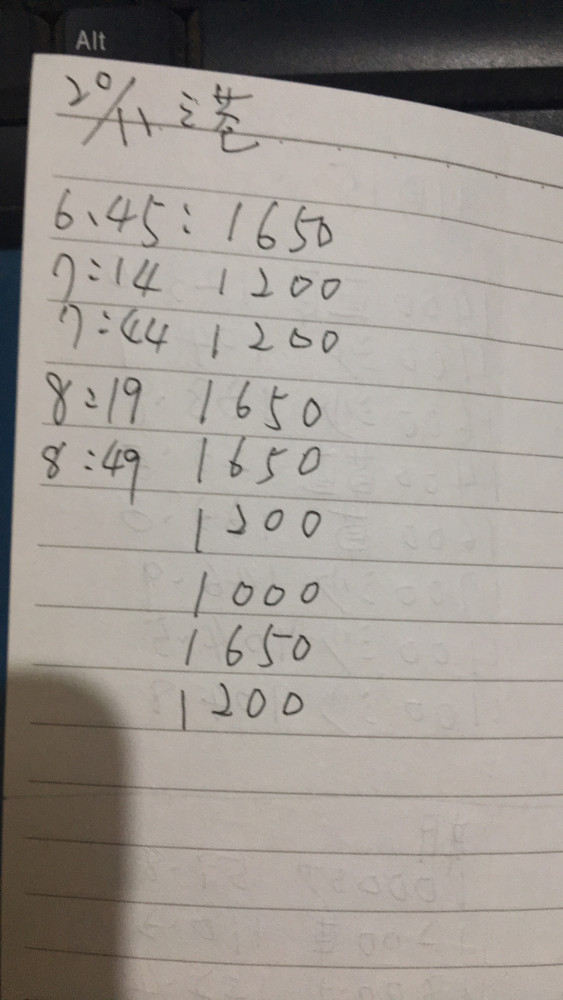 Alt
20/11 港
6.45: 1650
7:14 1200
7:44 1200
8:19 1650
8:49 1650
1200
1000
1650
1200